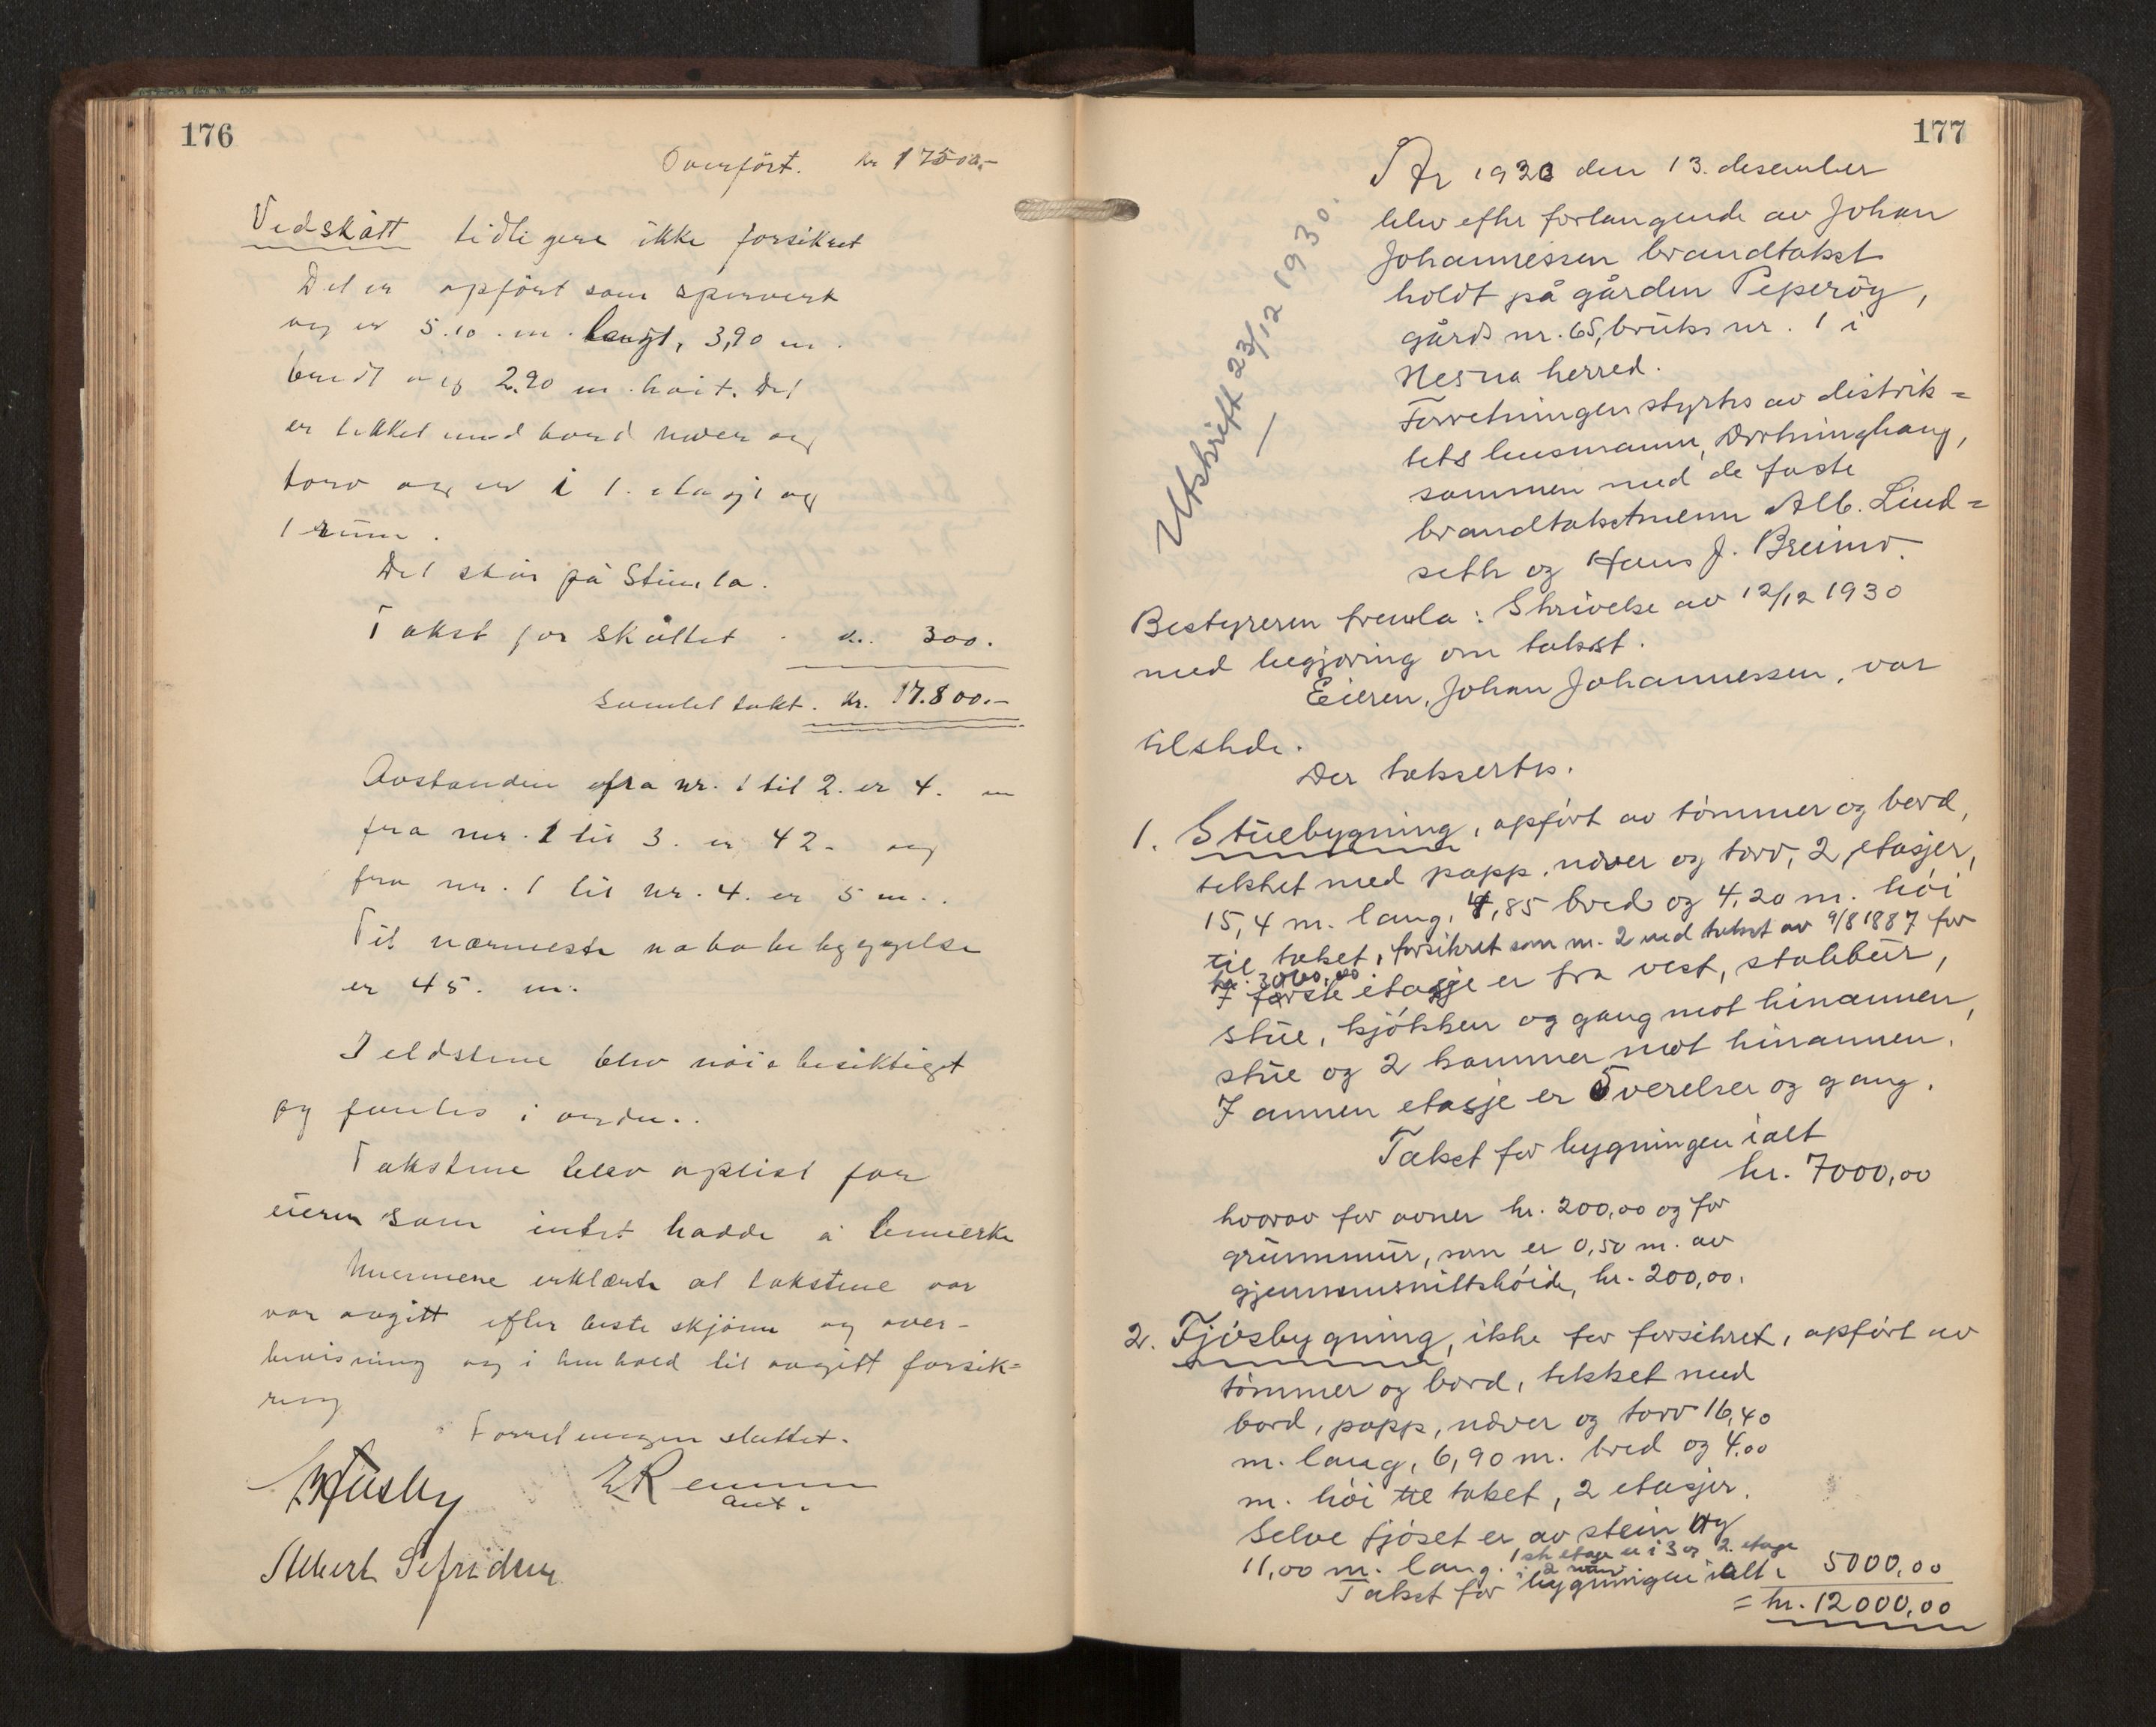 176
Overført. kr 17500.-
Vedskått tidligere ikke forsikret
Det er opført som sperverk
og er 5.10 m. langt, 3,90 m.
bredt og 2.90 m. høit. Det
er tekket med bord never og
torv og er i 1. etasje og
1 rum.
Det står på Stuvla.
Takst for skåttet kr. 300.
Samlet takst. kr. 17.800.-
Avstanden fra nr. 1 til 2. er 4. m
fra nr. 1 til 3. er 42. og
fra nr. 1 til nr. 4. er 5 m..
Til nærmeste nabobebyggelse
er 45. m.
Ildstene blev nøie besiktiget
og fantes i orden..
Takstene blev oplist for
eieren som intet hadde å bemerke
Mennene erklærte at takstene var
var avgitt efter beste skjønn og over-
bevisning og i henhold til avgitt forsik=
ring
Forretningen sluttet.
Husby ERemmen
aut.
Albert Sefridsen
177
Utskrift 23/12 1930.
År 1930 den 13. desember
blev efter forlangende av Johan
Johannessen brandtakst
holdt på gården Peperøy,
gårds nr. 65, bruks nr. 1 i
Nesna herred.
Forretningen styrtes av distrik=
tets lensmann, Dronninghaug,
sammen med de faste
brandtakstmenn Alb. Lind=
seth og Hans J. Breimo.
Bestyreren fremla: Skrivelse av 12/12 1930
med begjæring om takst.
Eieren, Johan Johannessen, var
tilstede.
Der taksertes.
1. Stuebygning, opført av tømmer og bord,
tekket med papp, never og torv, 2 etasjer,
15,4 m. lang, 4,85 bred og 4,20 m. høi
til taket, forsikret som nr. 2 ved takst av 9/8 1887 for
kr. 3000,00.
I første etasje er fra vest, stabbur,
stue, kjøkken og gang mot hinannen,
stue og 2 kammer mot hinannen.
I annen etasje er 5 verelser og gang.
Takst for bygningen ialt
kr. 7000,00
hvorav for ovner kr. 200,00 og for
grunnmur, som er 0,50 m. av
gjennemsnittshøide, kr. 200,00.
2. Fjøsbygning, ikke før forsikret, opført av
tømmer og bord, tekket med
bord, papp, never og torv 16,40
m. lang, 6,90 m. bred og 4.00
m. høi til taket, 2 etasjer.
Selve fjøset er av stein og
11,00 m. lang. 1ste etage er i 3 og 2. etage
i 2 rum.
Takst for bygningen ialt 5000,00
= kr. 12000,00